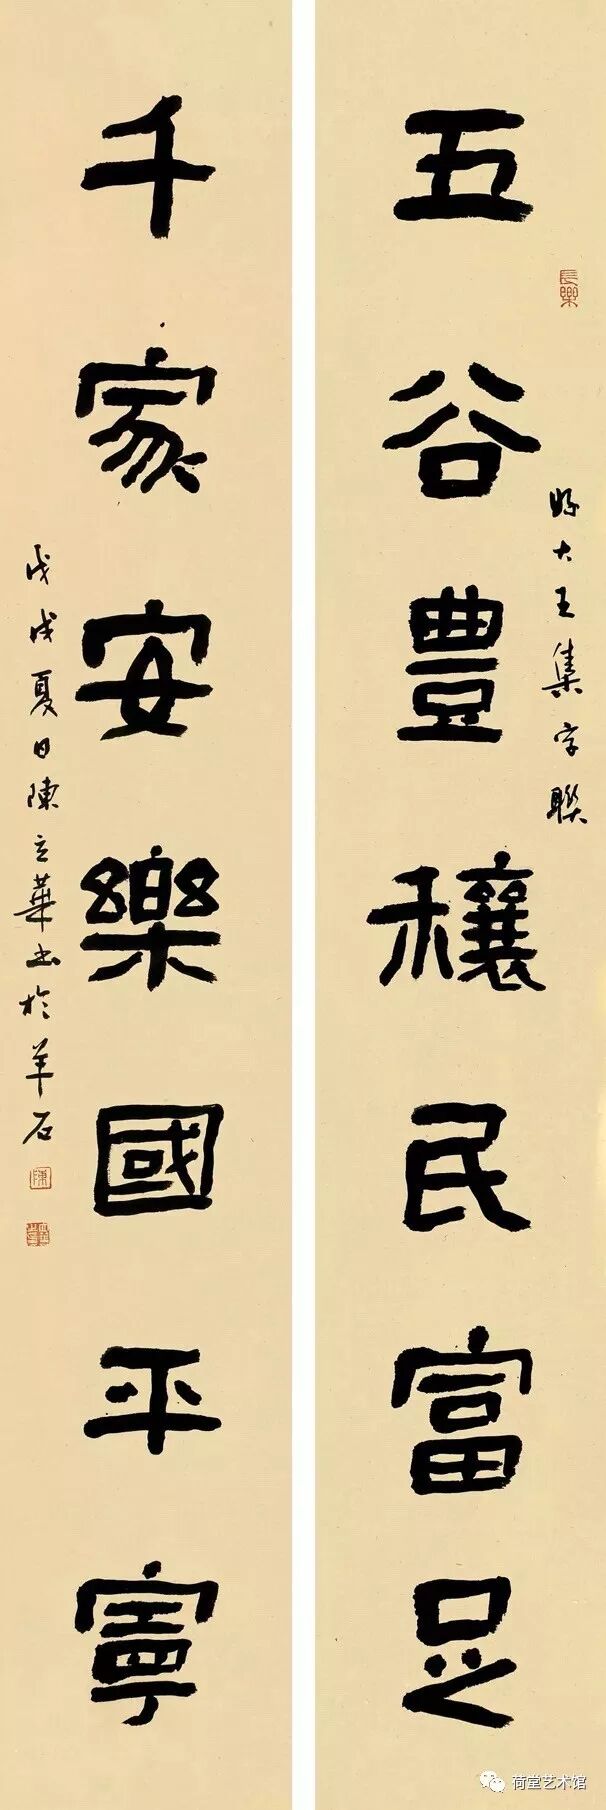 五谷豐穰民富足
好大王集字聯
千家安樂國平寧
戊戌夏日陳立華書於羊石
長樂
陳
荷堂艺术馆